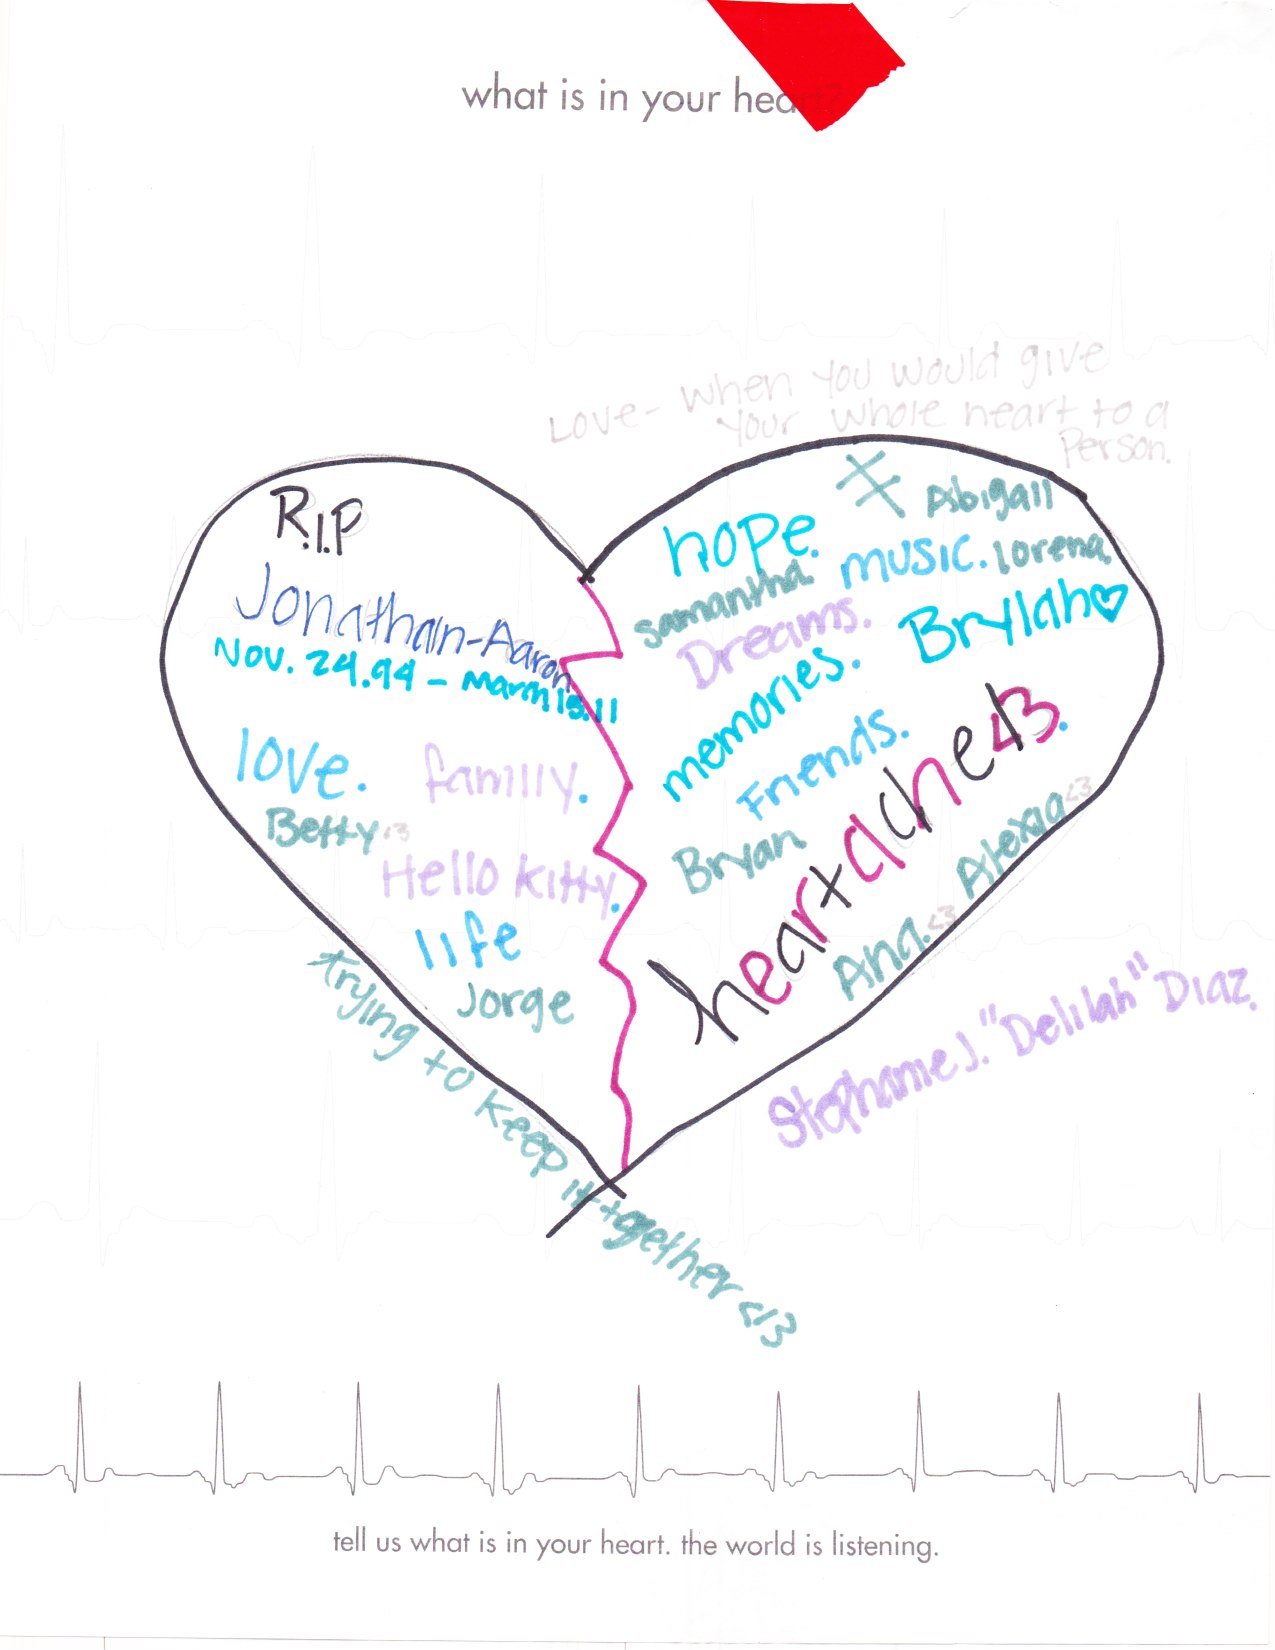 what is in your heart?
Love- when you would give
your whole heart to a
Person.
R.I.P
Jonathan-Aaron
Nov. 24.94 - March 15.11
love. family.
Betty <3
Hello Kitty.
life
Jorge
Abigail
hope.
music. lorena.
samantha.
Dreams.
Brylah♡
memories.
Friends.
heartache</3.
Bryan
Alexia <3
Ana. <3
trying to keep it together </3
Stephanie J. "Delilah" Diaz.
tell us what is in your heart. the world is listening.